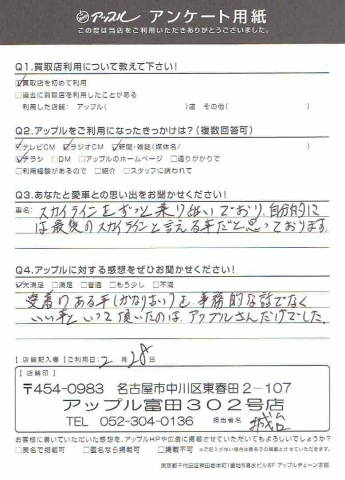 アップル アンケート用紙
この度は当店をご利用いただきありがとうございました。
Q1.買取店利用について教えて下さい!
☑買取店を初めて利用
□過去に買取店を利用したことがある
利用した店舗: アップル( )店 その他( )
Q2.アップルをご利用になったきっかけは?(複数回答可)
☑テレビCM ☑ラジオCM ☑新聞・雑誌(媒体名/ )
☑チラシ □DM □アップルのホームページ □通りがかりで
□利用経験があるので □紹介 □スタッフに誘われて
Q3.あなたと愛車との思い出をお聞かせください!
車名: スカイラインをずっと乗り継いでおり、自分的に
は最後のスカイラインと言える車だと思っております。
Q4.アップルに対する感想をぜひお聞かせください!
☑大満足 □満足 □普通 □もう少し □不満
愛着のある車(かなり古い)を、事務的な話でなく
いい車といって頂いたのは、アップルさんだけでした。
【店舗記入欄】ご利用日: 2月28日
【店舗印】
〒454-0983 名古屋市中川区東春田2-107
アップル富田302号店
TEL 052-304-0136 担当者名
お客様に書いていただいた感想を、アップルHPや広告に掲載させていただいてもよろしいでしょうか?
□実名で掲載可 □匿名なら掲載可 □掲載不可 ※ご記入がない場合は掲載可とさせていただきます。